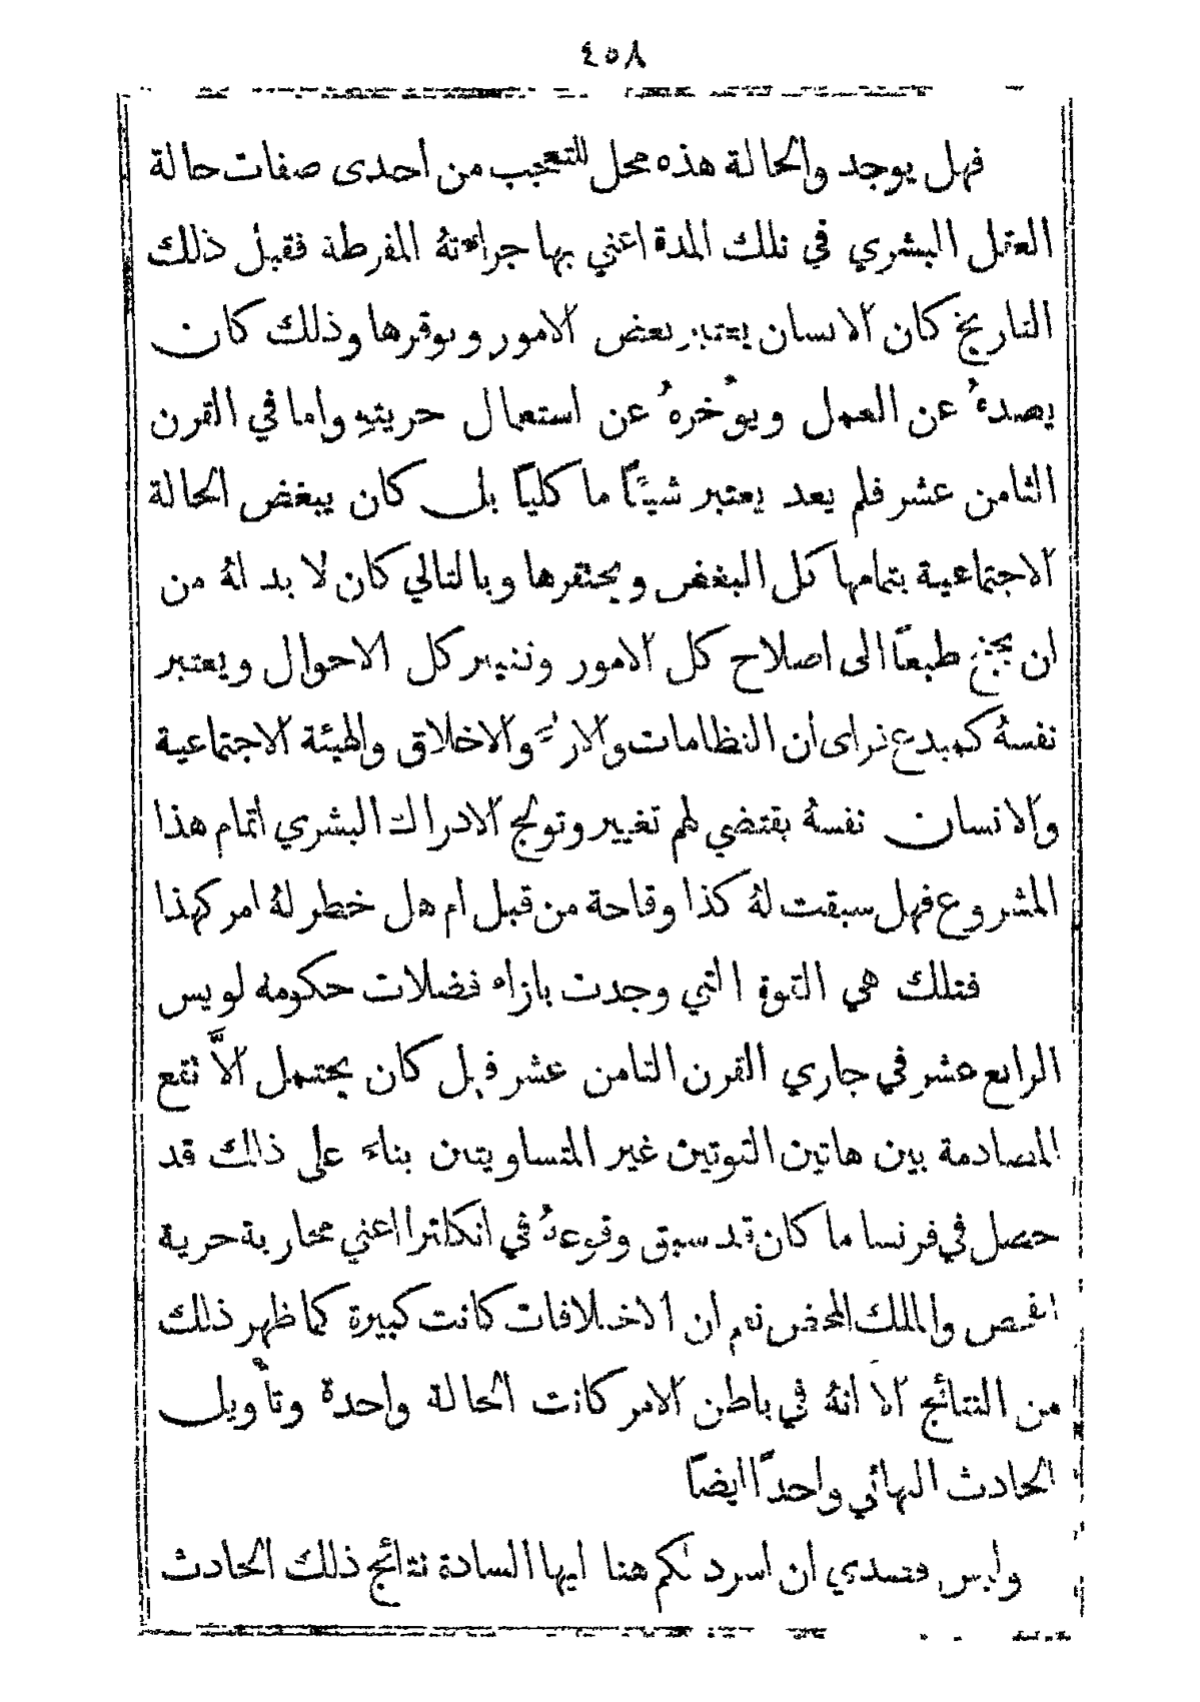 ٤٥٨
فهل يوجد والحالة هذه محل للتعجب من احدى صفات حالة
العقل البشري في تلك المدة اعني بها جراءتهُ المفرطة فقبل ذلك
التاريخ كان الانسان يعتبر بعض الامور ويوقرها وذلك كان
يصدهُ عن العمل ويوُخرهُ عن استعمال حريتهِ واما في القرن
الثامن عشر فلم يعد يعتبر شيئًا ما كليًا بل كان يبغض الحالة
الاجتماعية بتمامها كل البغض ويحتقرها وبالتالي كان لا بد لهُ من
ان يجنح طبعًا الى اصلاح كل الامور وتغيير كل الاحوال ويعتبر
نفسهُ كمبدع فراى ان النظامات والاراء والاخلاق والهيئة الاجتماعية
والانسان نفسهُ يقتضي لهم تغيير وتولج الادراك البشري اتمام هذا
المشروع فهل سبقت لهُ كذا وقاحة من قبل ام هل خطر لهُ امر كهذا
فتلك هي القوة التي وجدت بازاء فضلات حكومة لويس
الرابع عشر في جاري القرن الثامن عشر فهل كان يحتمل الاَّ تقع
المصادمة بين هاتين القوتين غير المتساويتين بناءً على ذلك قد
حصل في فرنسا ما كان قد سبق وقوعهُ في انكلترا اعني محاربة حرية
الفحص والملك المحض نعم ان الاختلافات كانت كبيرة كما ظهر ذلك
من النتائج الا انهُ في باطن الامر كانت الحالة واحدة وتأويل
الحادث النهائي واحدًا ايضًا
وليس قصدي ان اسرد لكم هنا ايها السادة نتائج ذلك الحادث